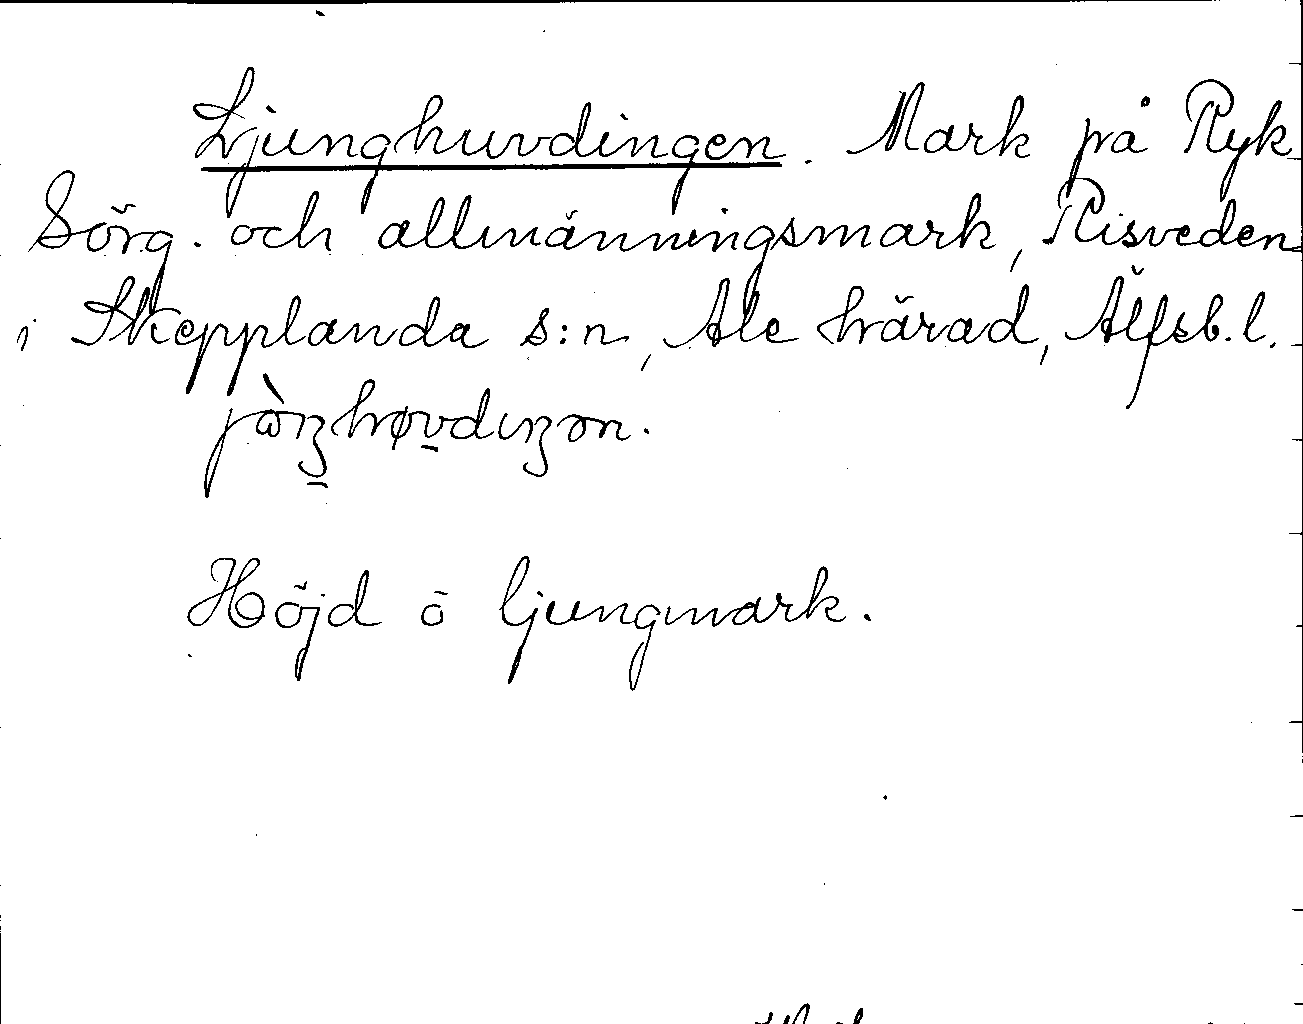 Ljunghuvdingen. Mark på Ryk
Sörg. och allmänningsmark, Risveden
i Skepplanda s:n, Ale härad, Älfsb. l.
jòŋhøvdıŋən.
Höjd o ljungmark.